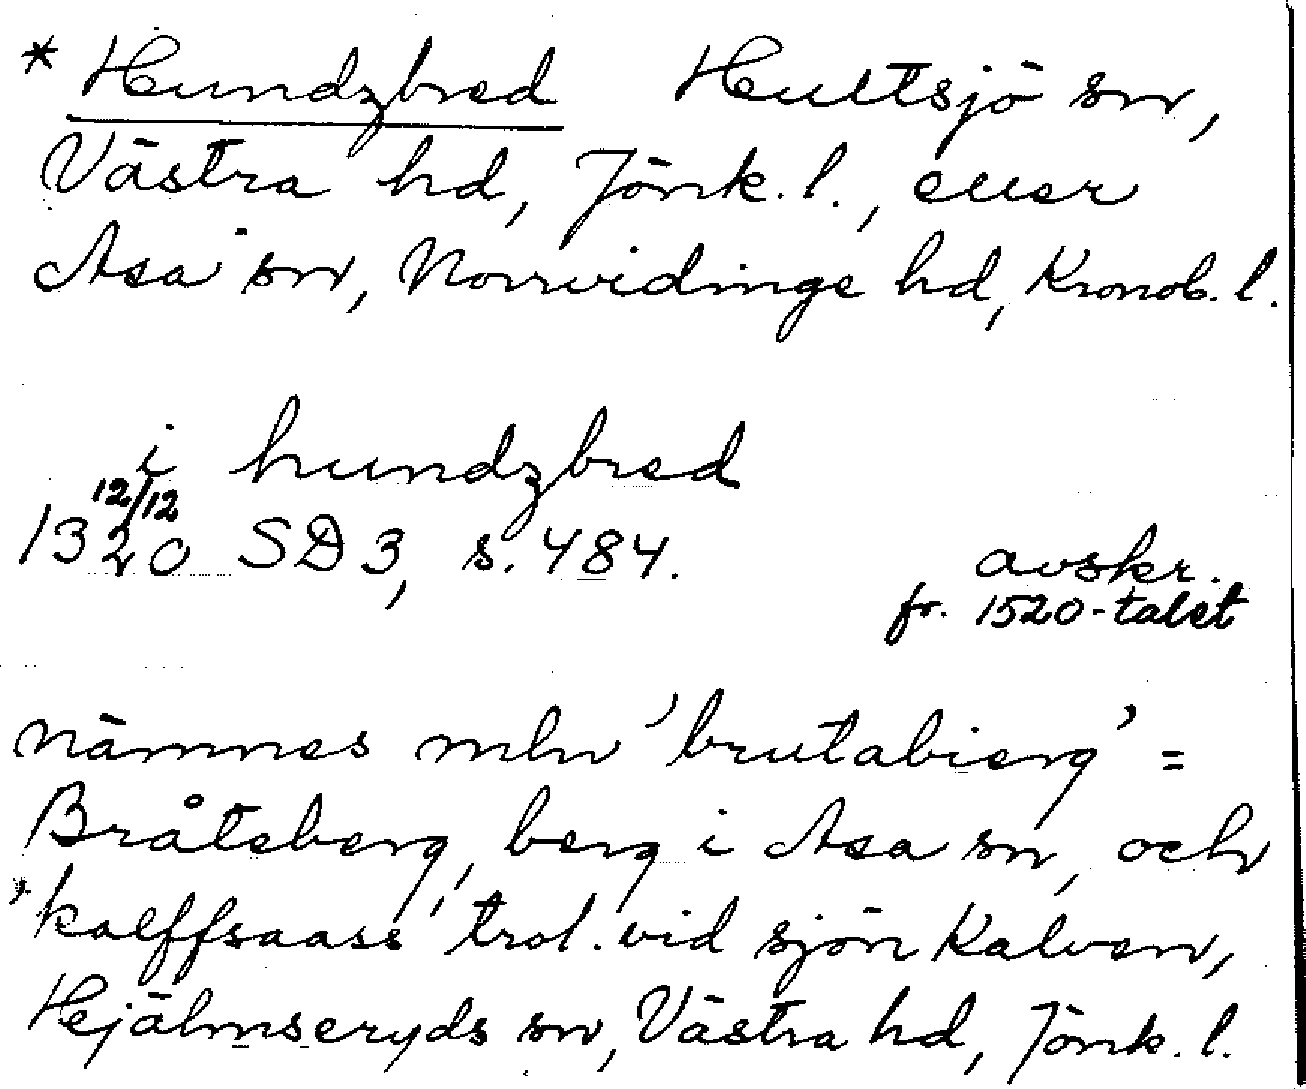 * Hundzbred Hultsjö sn,
Västra hd, Jönk. l., eller
Asa sn, Norrvidinge hd, Kronob. l.
i hundzbred
12/12
1320 SD 3, s. 484.
avskr.
fr. 1520-talet
nämnes mln 'brutabierg' =
Bråteberg, berg i Asa sn, och
'kalffsaass' trol. vid sjön Kalven,
Hejälmseryds sn, Västra hd, Jönk. l.